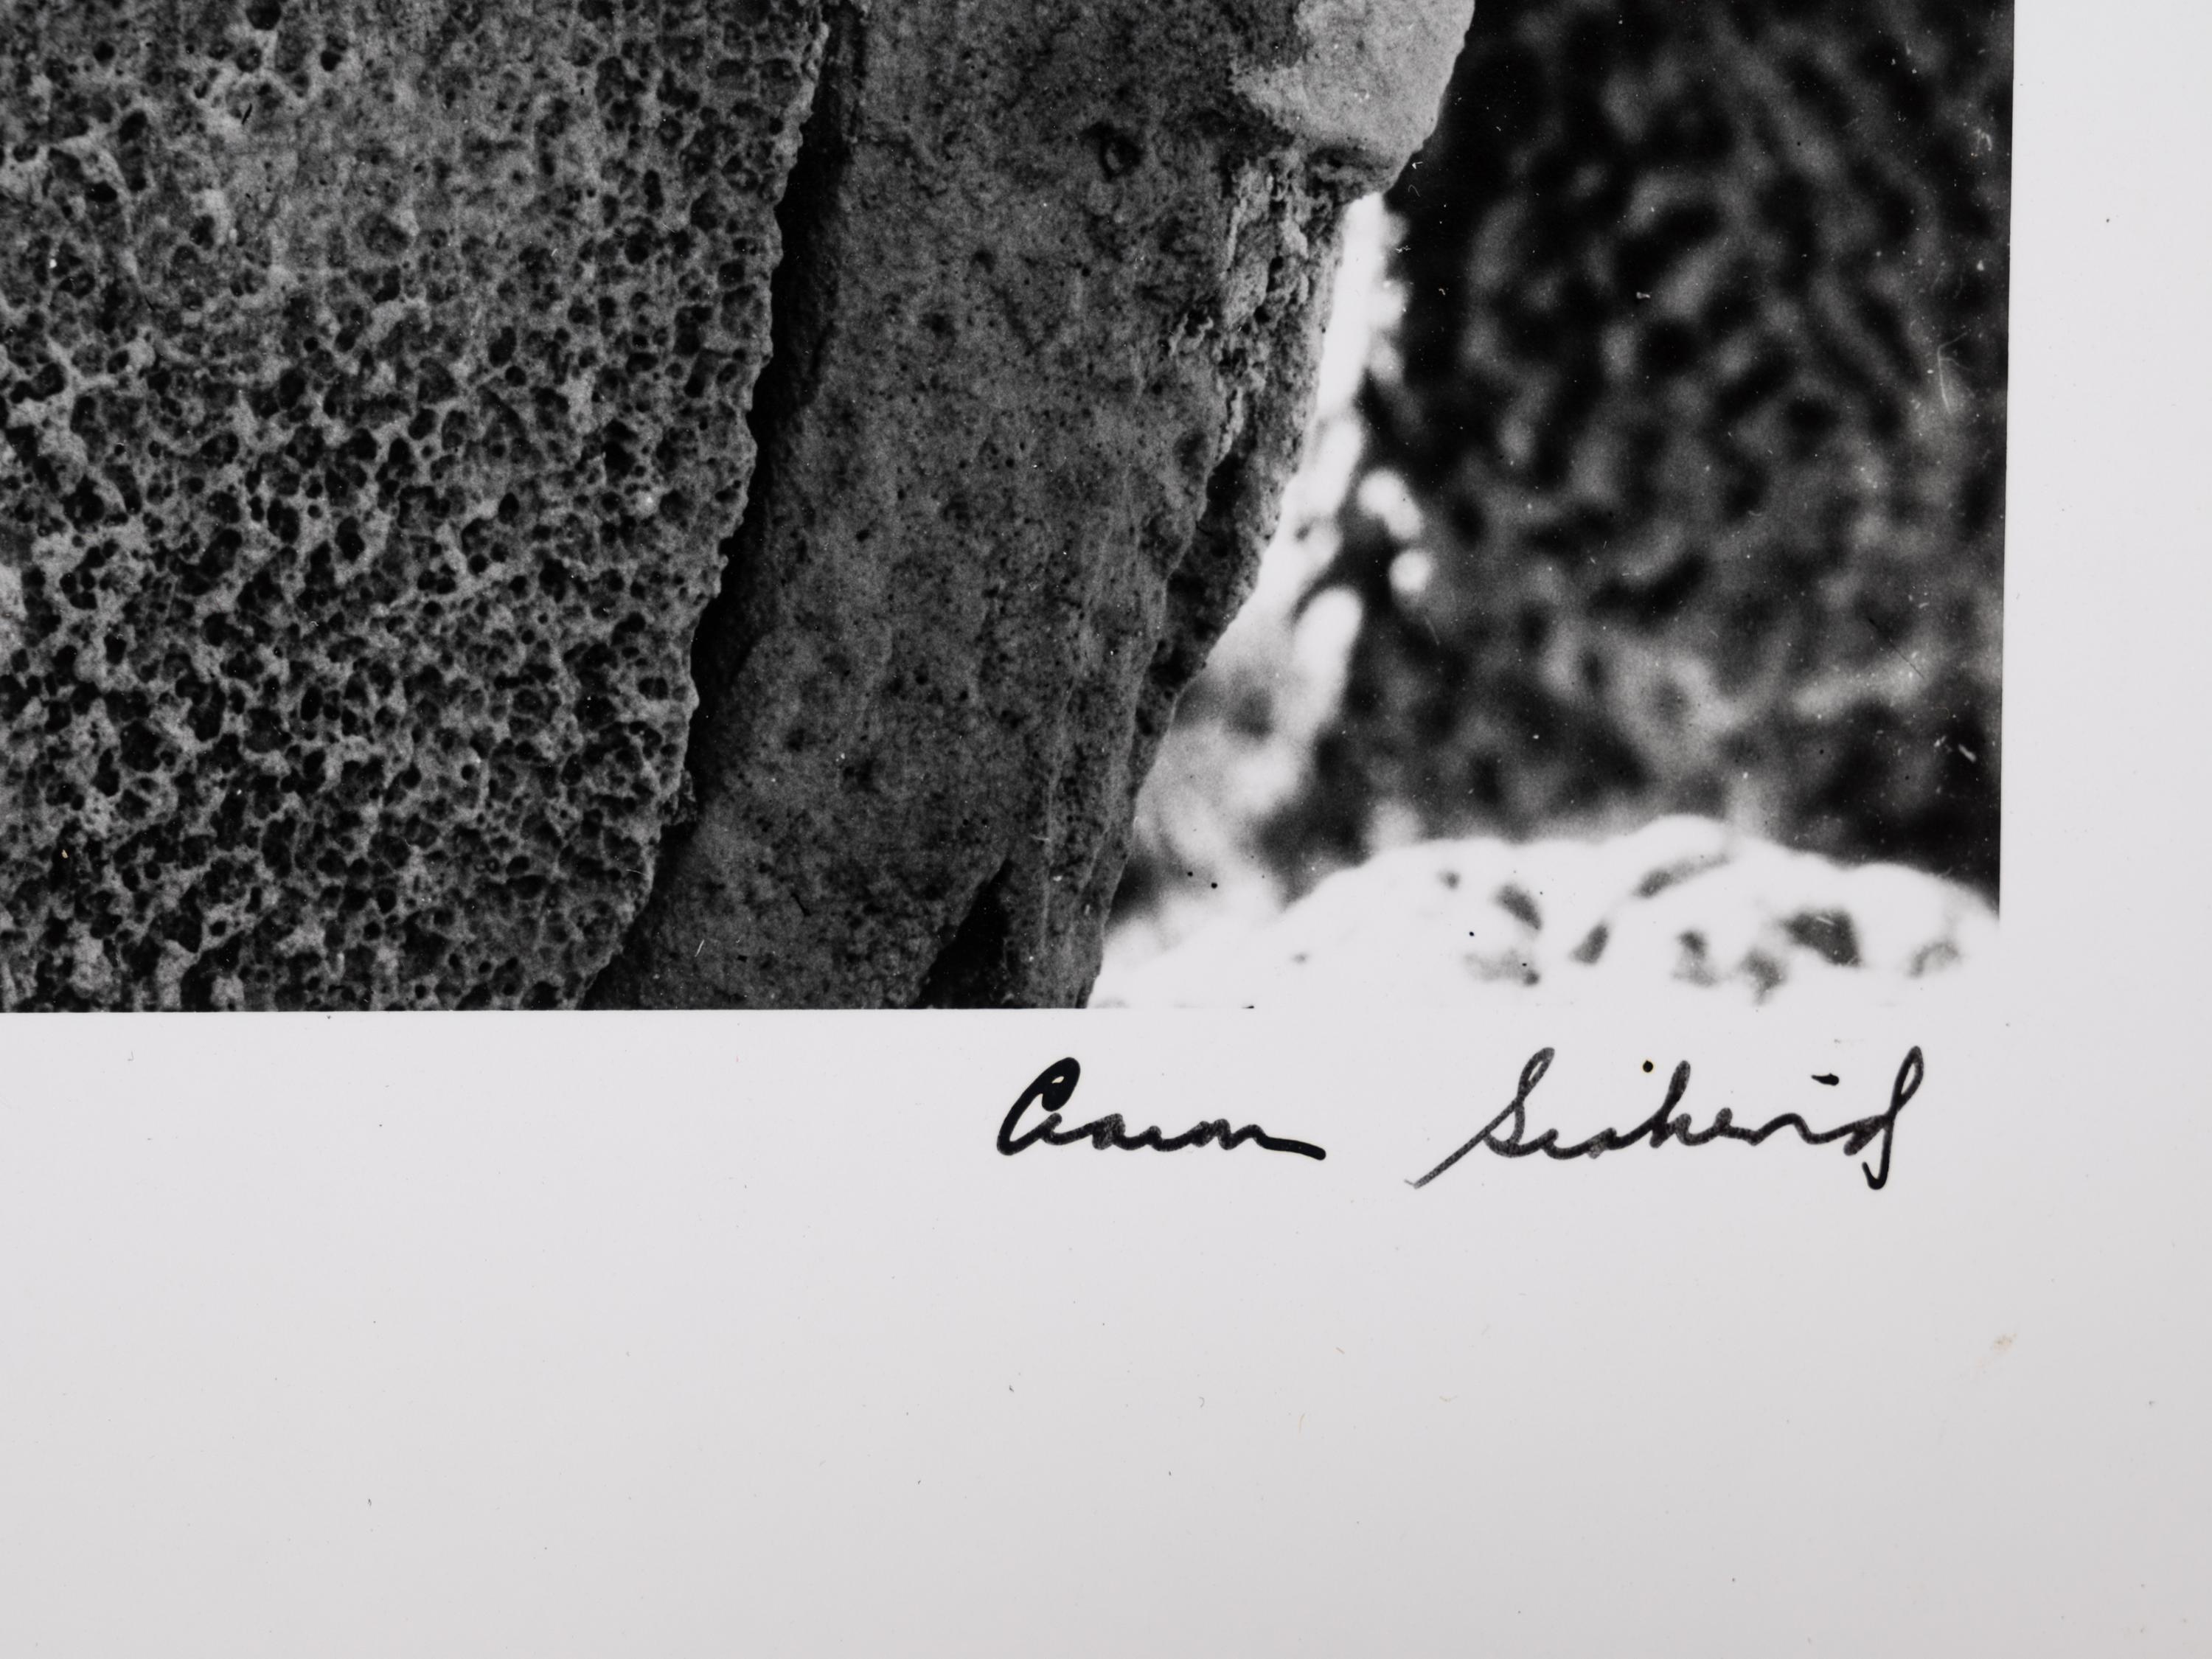 Aaron Siskind